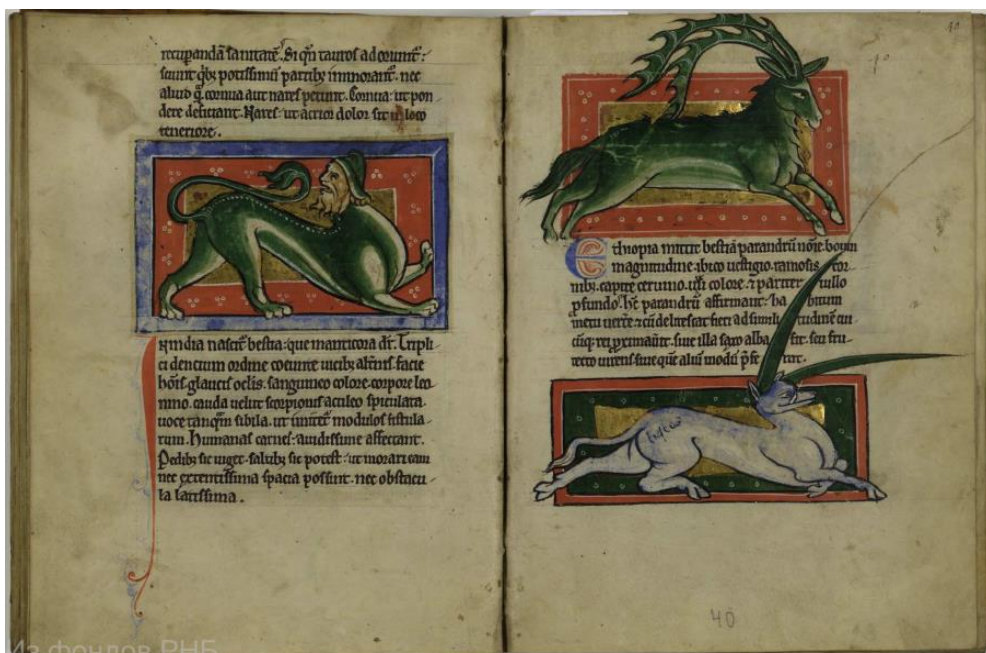 recuperandā sanitatē. Si qn̄ tauros adoriunt᷑:
suunt qb; potissimū partib; innorant. nec
aliud q̄ cornua aut nares petunt. Cornua: ut pon
dere deficiant. Nares: ut acrior dolor sit in loco
teneriore.
India nascit᷑ bestia: que manticora dr̄. Tripli
ci dentium ordine coeunte uicib; alt̄nis. facie
hoīs. glaucis oclis. sanguineo colore. corpore leo
nino. cauda uelut scorpionis aculeo spiculata.
uoce tanq̄m sibila. ut imitet᷑ modulos fistula
rum. Humanas carnes. auidissime affectant.
Pedib; sic uiget. saltib; sic potest: ut morari eam
nec extentissima spacia possint. nec obstacu
la latissima.
40
Ethiopia mittit bestiā parandrū noīe. boum
magnitudine. ibico uestigio. ramosis cor
nib;. capite ceruino. ursi colore. ⁊ pariter uillo
pfundo. h̄c parandrū affirmant: ha bitum
metu uert̄e ⁊ cū delitescat fieri ad simili tudinē cui
cūq; rei pximaūit. siue illa saxo alba sit. seu fru
tecto uirens. siue quē aliū modū p̄fe rat.
40
Из фондов РНБ